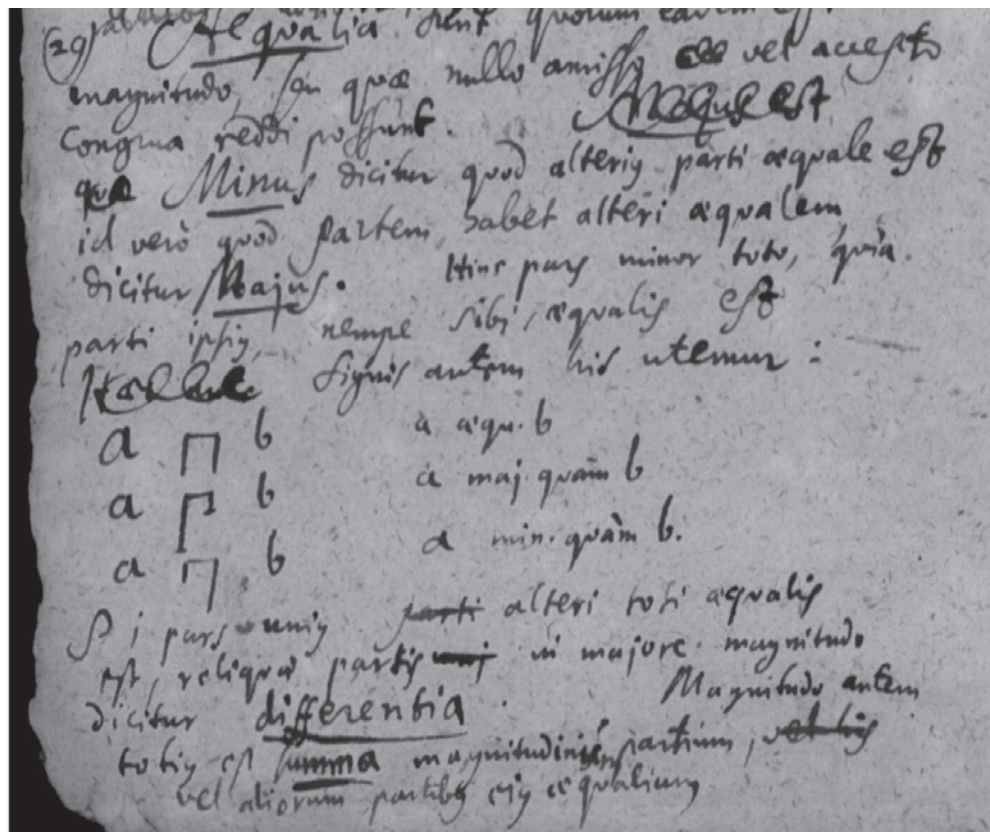 (29) Aequalia sunt quorum eadem est
magnitudo, seu quae nullo amisso vel accepto
congrua reddi possunt.
Minus dicitur quod alterius parti aequale est
id vero quod partem habet alteri aequalem,
dicitur Majus. Hinc pars minor toto, quia
parti ipsius, nempe sibi, aequalis est
signis autem his utemur:
a ⊓ b a aequ. b
a b a maj. quam b
a b a min. quàm b.
Si pars unius parti alteri toti aequalis
est, reliquae partis in majore magnitudo
dicitur differentia. Magnitudo autem
totius est summa magnitudinum partium,
vel aliorum partibus ejus aequalium